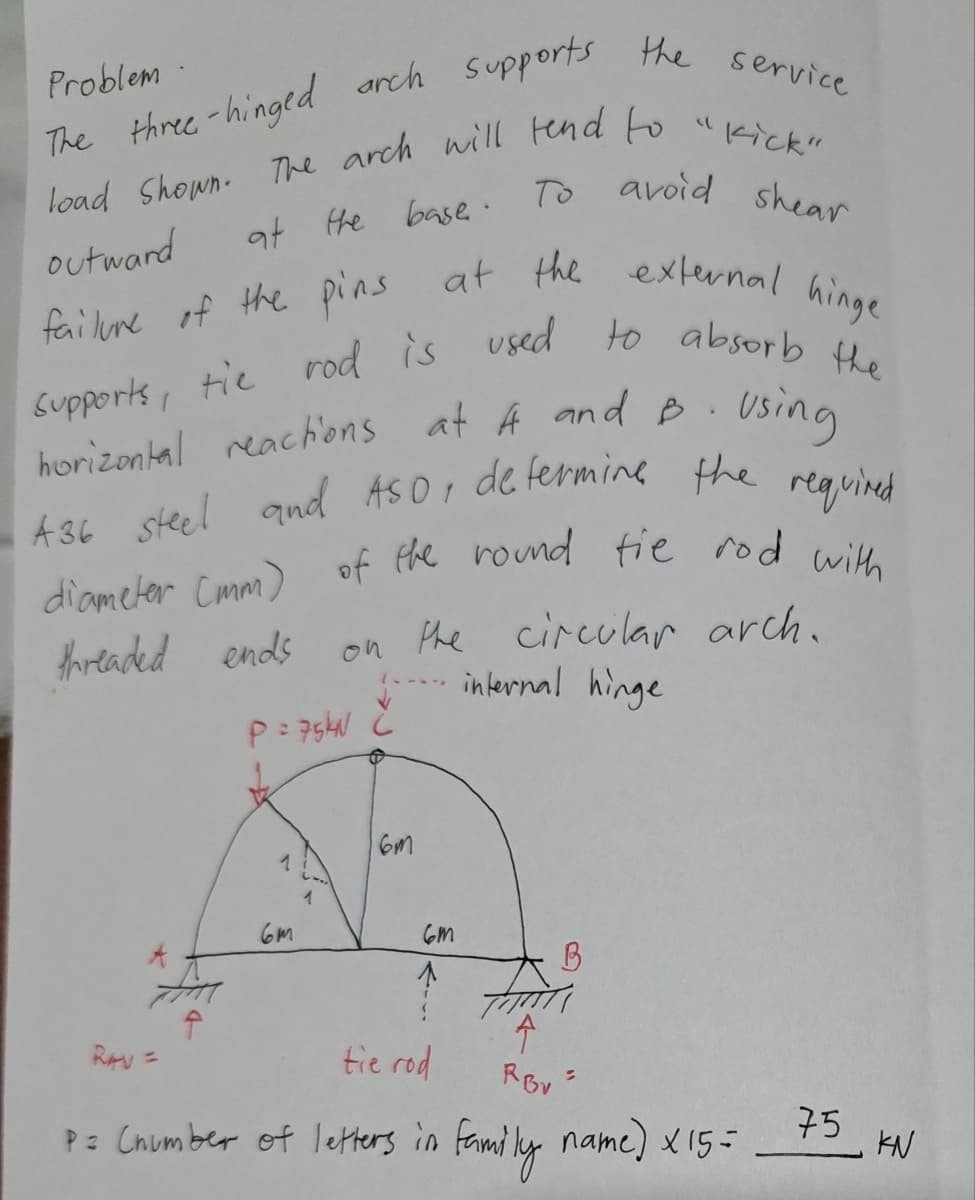 Problem.
The three-hinged arch supports the service
load shown. The arch will tend to "kick"
outward at the base. To avoid shear
failure of the pins at the external hinge
supports, tie rod is used to absorb the
horizontal reactions at A and B. Using
A36 steel and ASD, determine the required
diameter (mm) of the round tie rod with
threaded ends on the circular arch.
internal hinge
P = 75kN C
6m
1
1
6m 6m
A B
RAV = tie rod RBV =
P = (number of letters in family name) x 15 = 75 kN